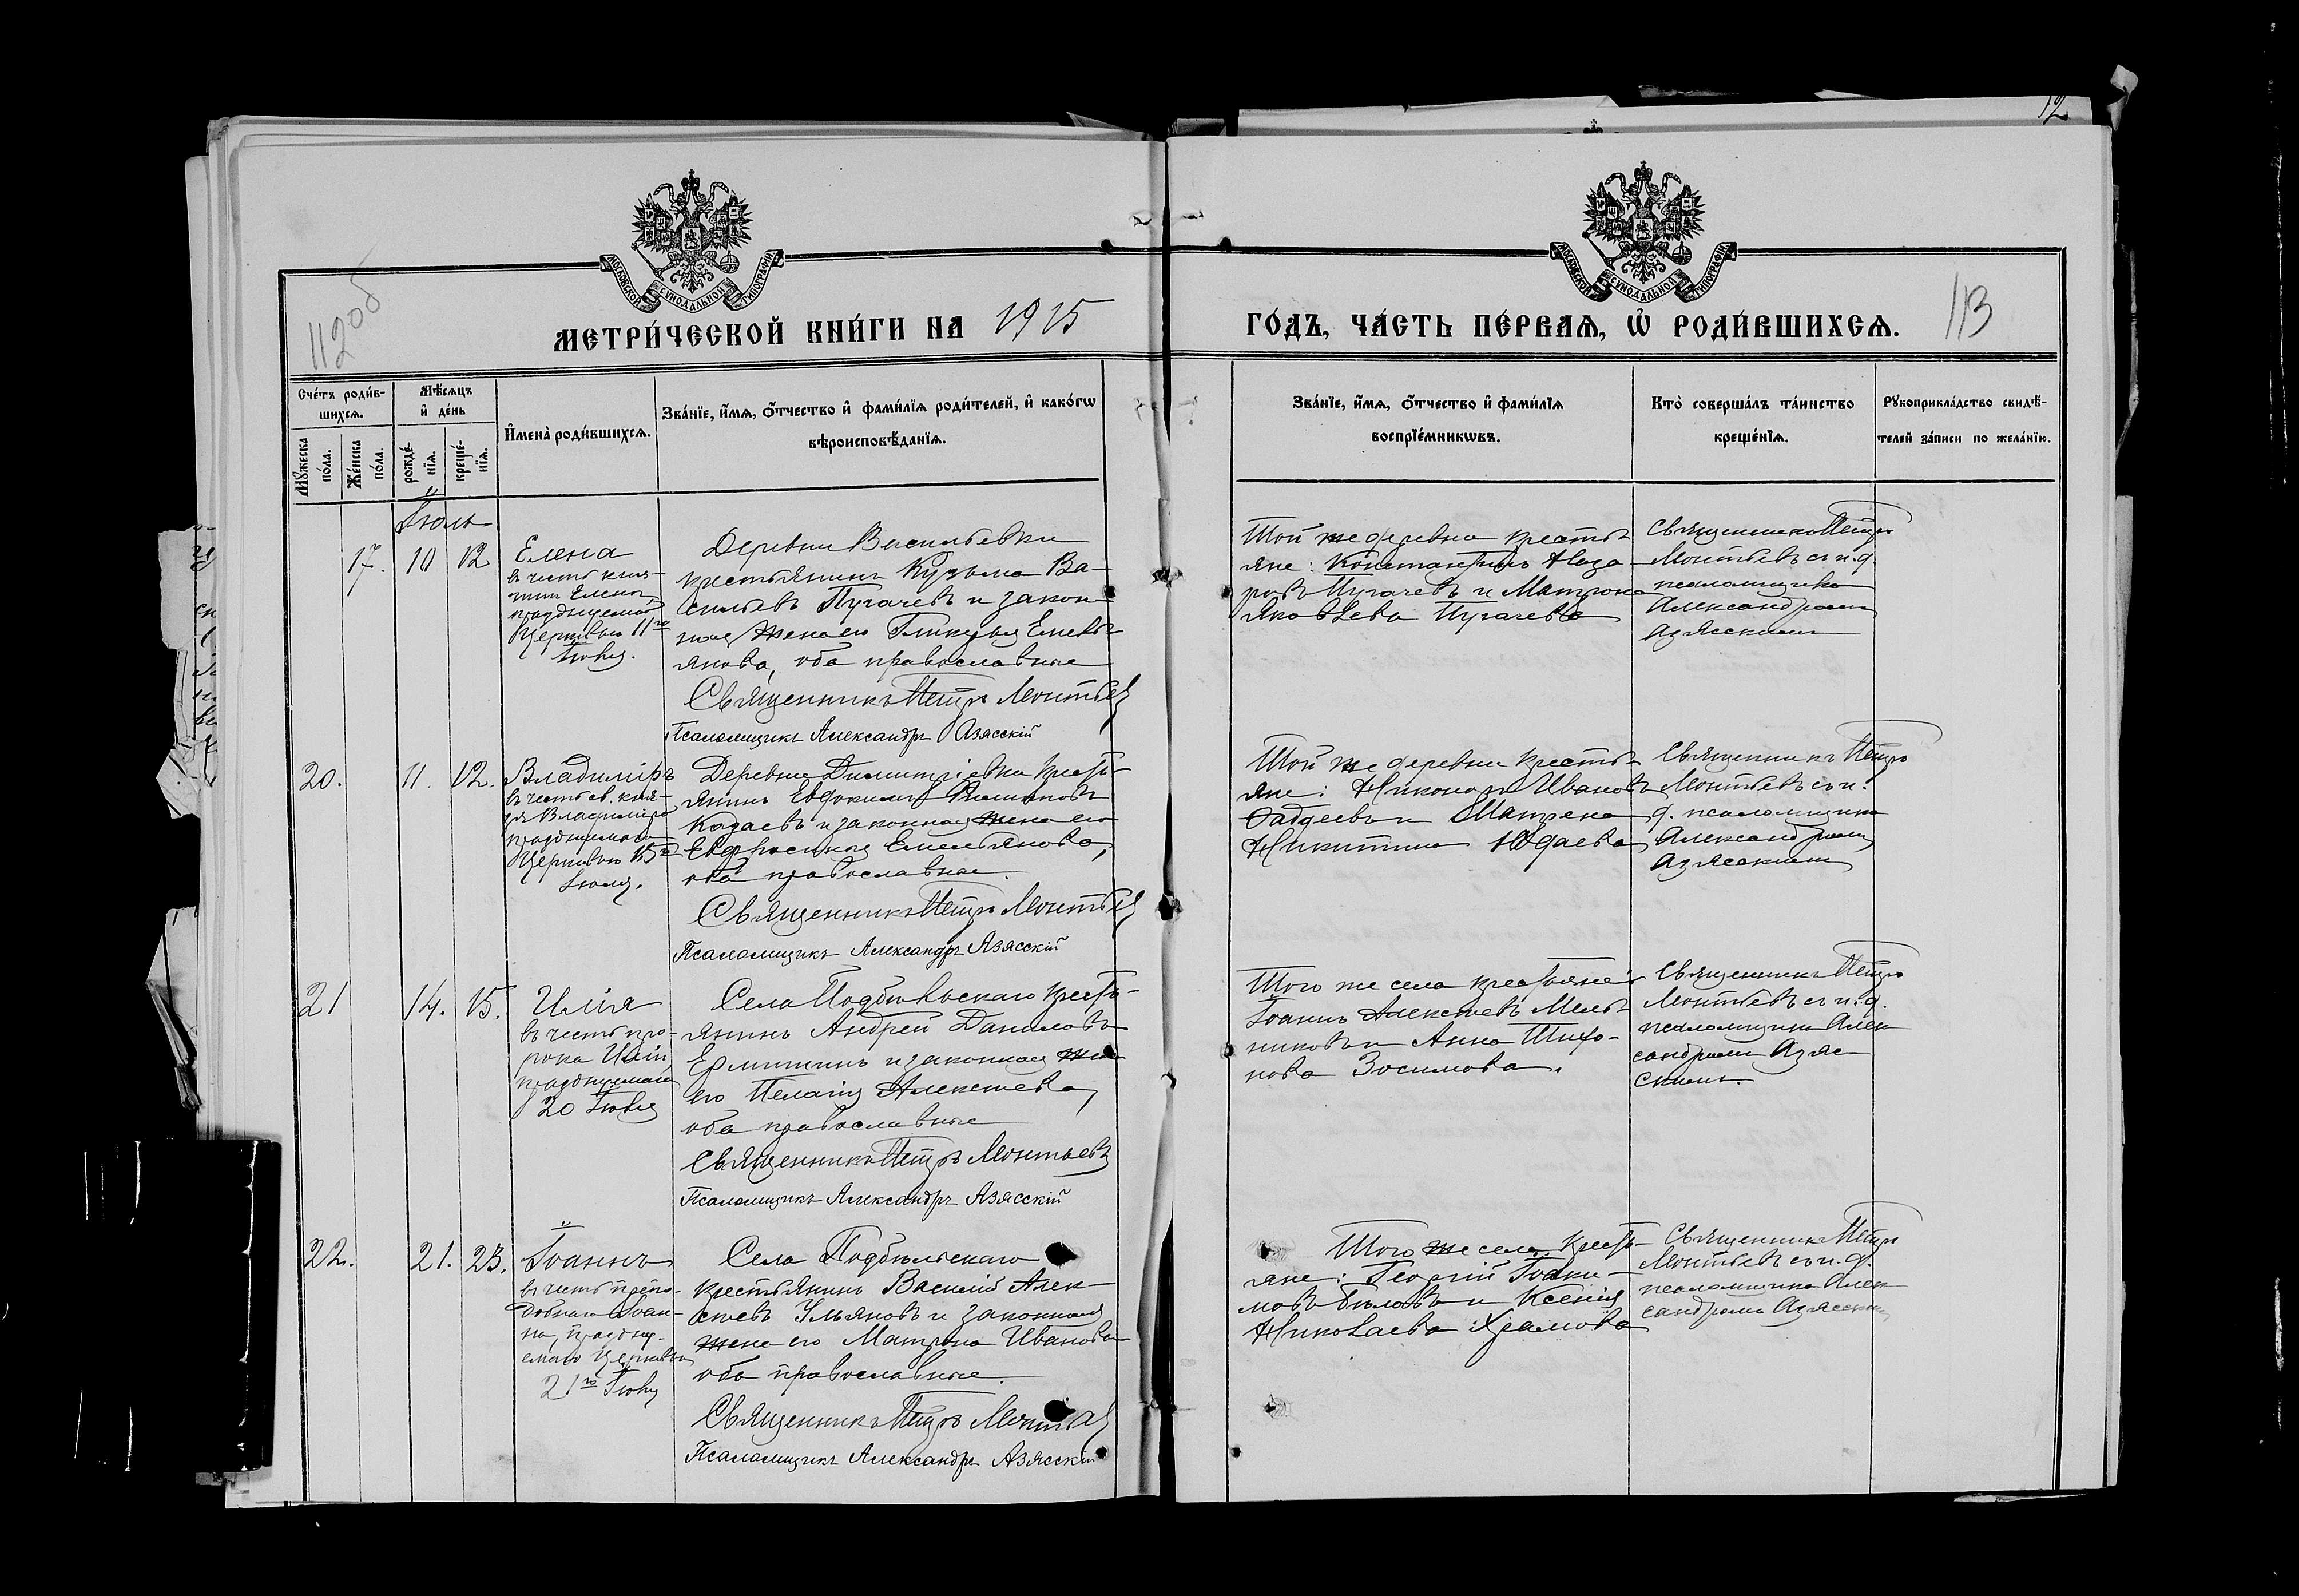 12
112об
113
МОСКОВСКОЙ СѴНОДАЛЬНОЙ ТИПОГРАФІИ
МОСКОВСКОЙ СѴНОДАЛЬНОЙ ТИПОГРАФІИ
МЕТРИ́ЧЕСКОЙ КНИ́ГИ НА 1915
ГО́ДЪ, ЧА́СТЬ ПЕ́РВАѦ, Ѡ҆ РОДИ́ВШИХСѦ.
Сче́тъ роди́в-
шихсѧ.
Мѣ́сѧцъ
и҆ де́нь
Мꙋ́жеска
по́ла.
Же́нска
по́ла.
рожде́-
нїѧ.
креще́-
нїѧ.
И҆мена̀ роди́вшихсѧ.
Зва́нїе, и҆́мѧ, ѻ҆́тчество и҆ фами́лїѧ роди́телей, и҆ како́гѡ
вѣроисповѣ́данїѧ.
Зва́нїе, и҆́мѧ, ѻ҆́тчество и҆ фами́лїѧ
воспрїе́мникѡвъ.
Кто̀ соверша́лъ та́инство
креще́нїѧ.
Рꙋкоприкла́дство свидѣ́-
телей за́писи по жела́нїю.
Іюль
17. 10 12
Елена
въ честь кня-
гини Елены,
празднуемой
Церковью 11го
Іюля.
Деревни Васильевки
крестьянинъ Кузьма Ва-
сильевъ Пугачевъ и закон-
ная жена его Гликерия Емель-
янова, оба православные
Священникъ Петръ Леонтьев
Псаломщикъ Александръ Азясскій
Той же деревни кресть-
яне: Константинъ Наза-
ровъ Пугачевъ и Матрона
Яковлева Пугачева
Священникъ Петръ
Леонтьевъ съ и.д.
псаломщика
Александромъ
Азясскимъ
20. 11. 12.
Владиміръ
въ честь св. кня-
зя Владиміра
празднуемаго
Церковью 15го
Іюля.
Деревни Димитріевки кресть-
янинъ Евдокимъ Филиповъ
Кадаевъ и законная жена его
Евфросиния Емельянова,
оба православные.
Священникъ Петръ Леонтьев
Псаломщикъ Александръ Азясскій
Той же деревни кресть-
яне: Никоноръ Ивановъ
Фадеевъ и Матрена
Никитина Юдаева
Священникъ Петръ
Леонтьевъ съ и.
д. псаломщика
Александромъ
Азясскимъ
21 14. 15.
Илія
въ честь про-
рока Иліи
празднуемаго
20 Іюля
Села Подбѣльскаго кресть-
янинъ Андрей Даниловъ
Ермишинъ и законная жена
его Пелагия Алексѣева,
оба православные
Священникъ Петръ Леонтьевъ
Псаломщикъ Александръ Азясскій
Того же села крестьяне:
Іоаннъ Алексѣевъ Мель-
никовъ и Анна Тихо-
нова Зосимова.
Священникъ Петръ
Леонтьевъ съ и.д.
псаломщика Алек-
сандромъ Азяс-
скимъ.
22. 21. 23.
Іоаннъ
въ честь препо-
добнаго Іоан-
на, праздну-
емаго Церковью
21го Іюля
Села Подбѣльскаго
крестьянинъ Василій Алек-
сѣевъ Ульяновъ и законная
жена его Матрона Иванова
оба православные.
Священникъ Петръ Леонтьев
Псаломщикъ Александръ Азясскій
Того же села кресть-
яне: Георгій Іоаки-
мовъ Бѣловъ и Ксенія
Николаева Храмова
Священникъ Петръ
Леонтьевъ съ и.д.
псаломщика Алек-
сандромъ Азясским